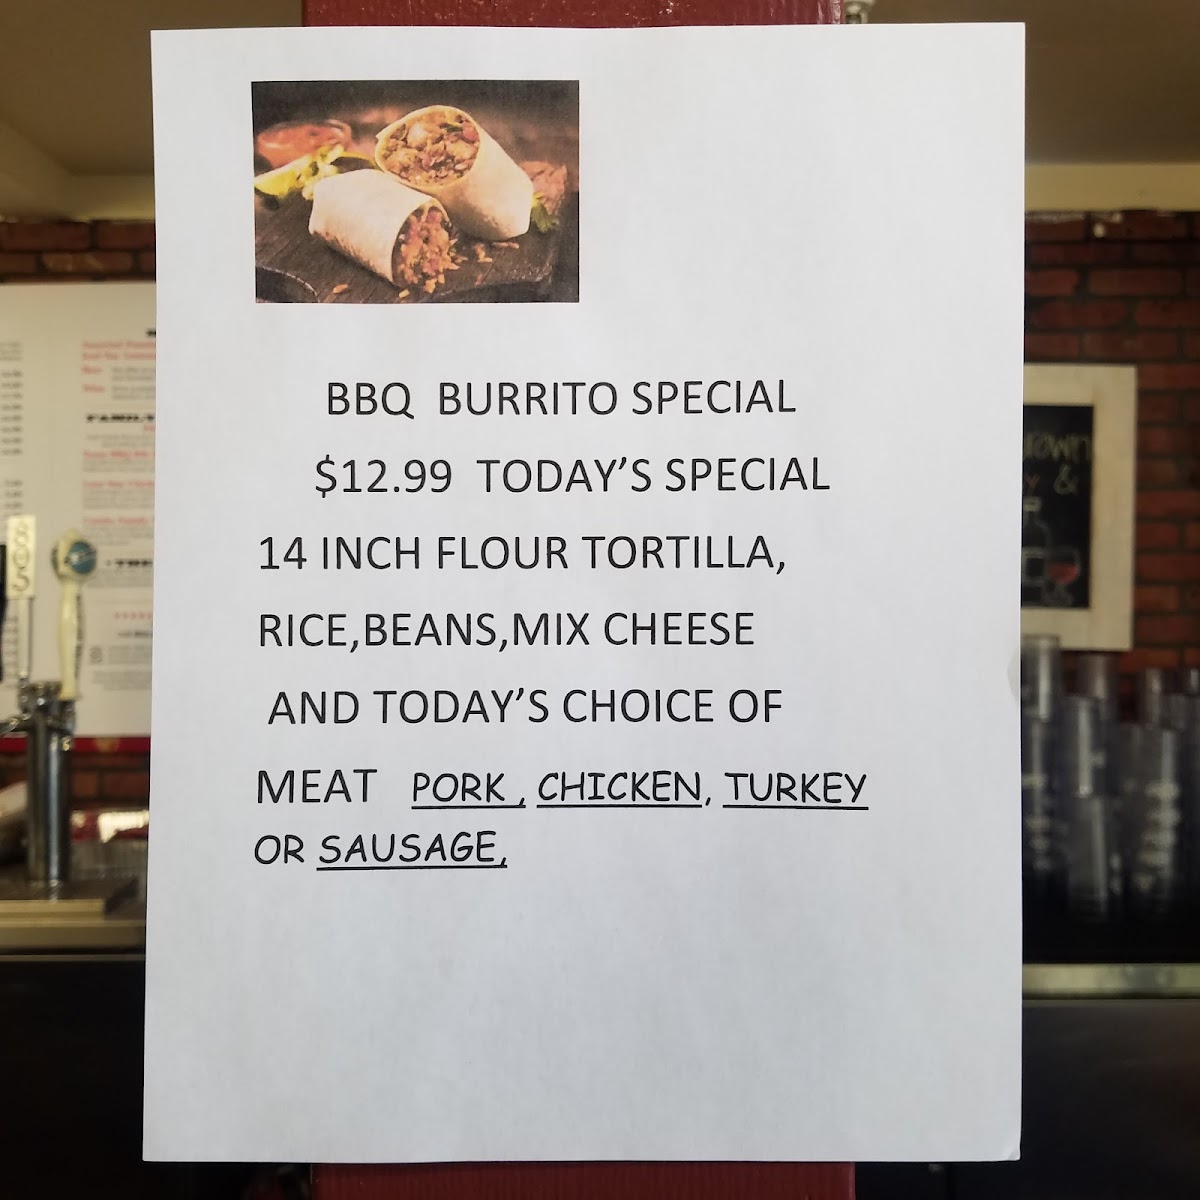 BBQ  BURRITO SPECIAL
$12.99  TODAY'S SPECIAL
14 INCH FLOUR TORTILLA,
RICE,BEANS,MIX CHEESE
AND TODAY'S CHOICE OF
MEAT   PORK , CHICKEN, TURKEY
OR SAUSAGE,